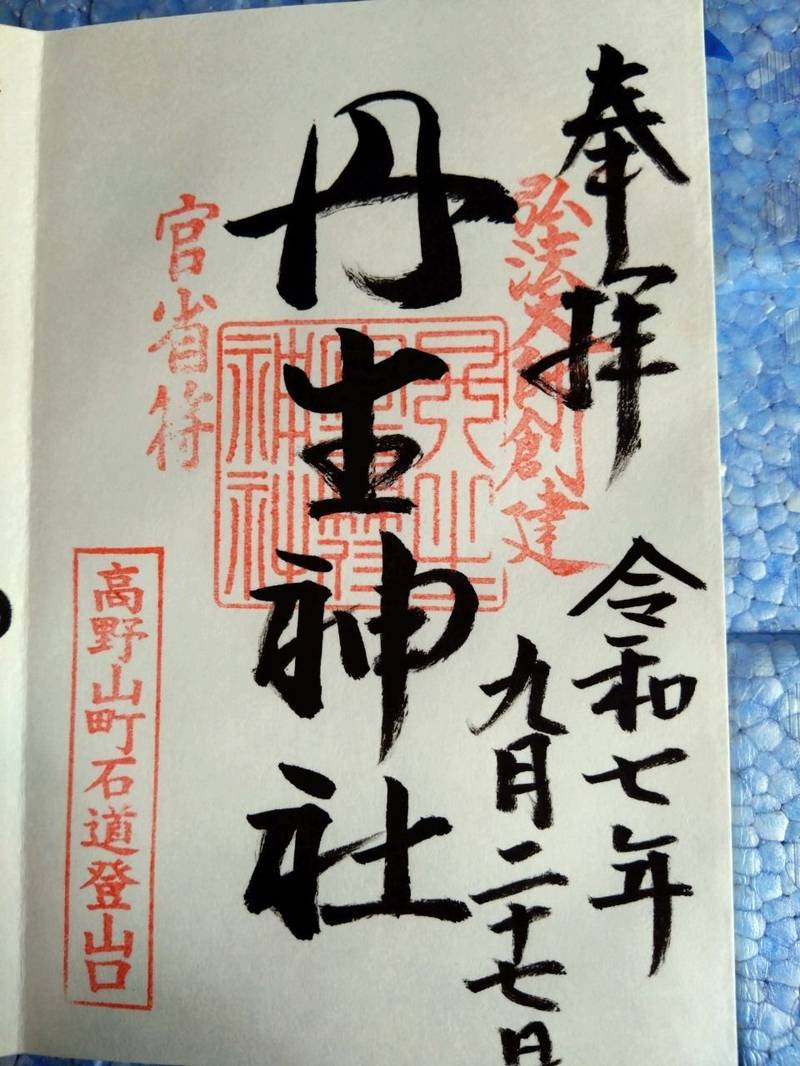 奉拝
弘法大師創建
令和七年
九月二十七日
丹生神社
官省符
高野山町石道登山口